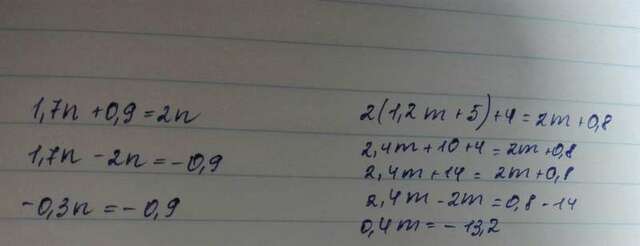 1,7n + 0,9 = 2n
1,7n - 2n = -0,9
-0,3n = -0,9
2(1,2m + 5) + 4 = 2m + 0,8
2,4m + 10 + 4 = 2m + 0,8
2,4m + 14 = 2m + 0,8
2,4m - 2m = 0,8 - 14
0,4m = - 13,2